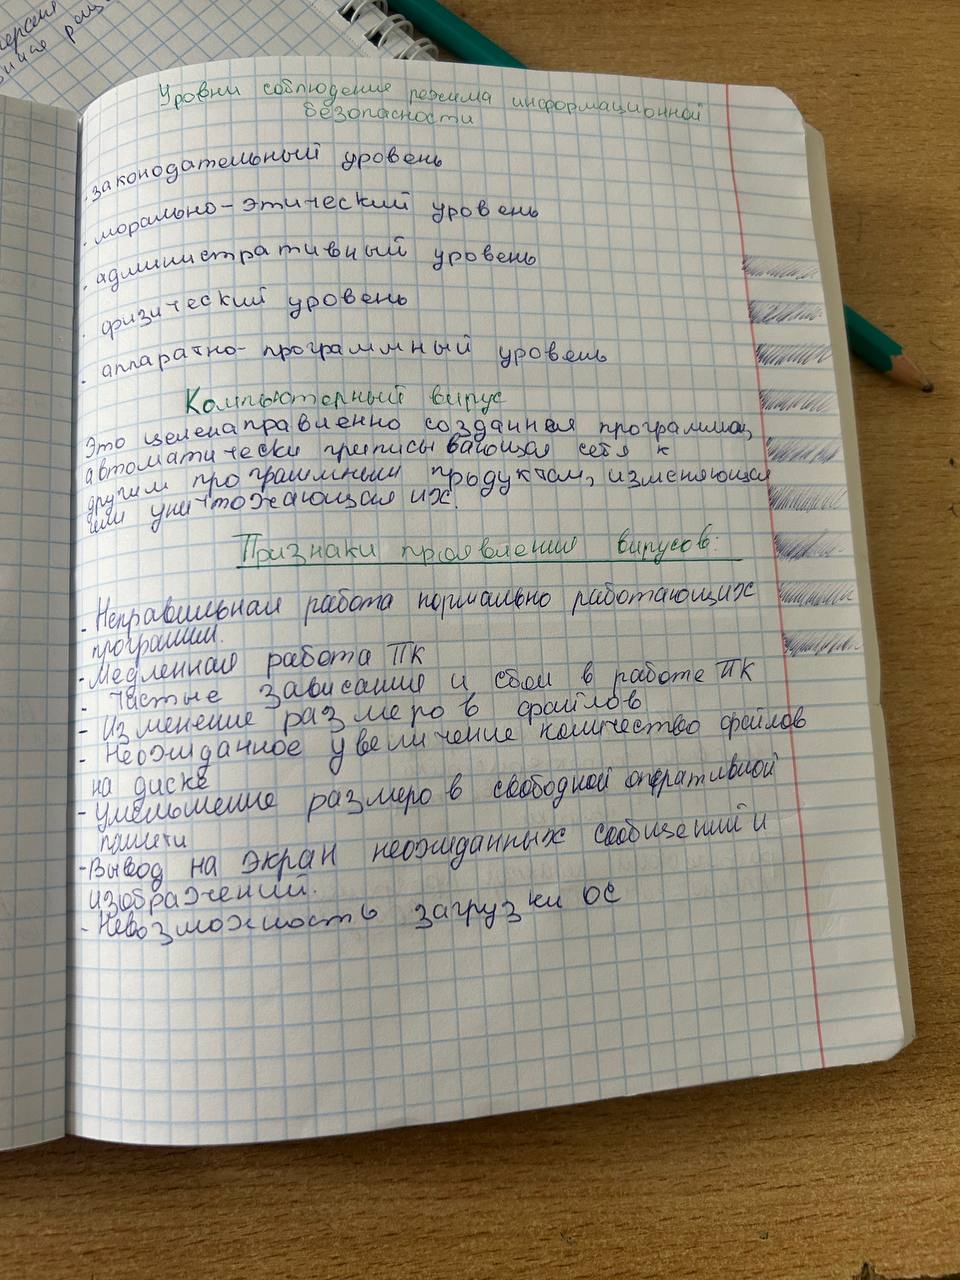 Уровни соблюдение режима информационной
безопасности
· законодательный уровень
· морально-этический уровень
· административный уровень
· физический уровень
· аппаратно-программный уровень
Компьютерный вирус
Это целенаправленно созданная программа,
автоматически приписывающая себя к
другим программным продуктам, изменяющая
или уничтожающая их.
Признаки проявления вирусов:
- Неправильная работа нормально работающих
программ.
- Медленная работа ПК
- Частые зависания и сбои в работе ПК
- Изменение размеров файлов
- Неожиданное увеличение количество файлов
на диске
- Уменьшение размеров свободной оперативной
памяти
- Вывод на экран неожиданных сообщений и
изображений.
- Невозможность загрузки ОС